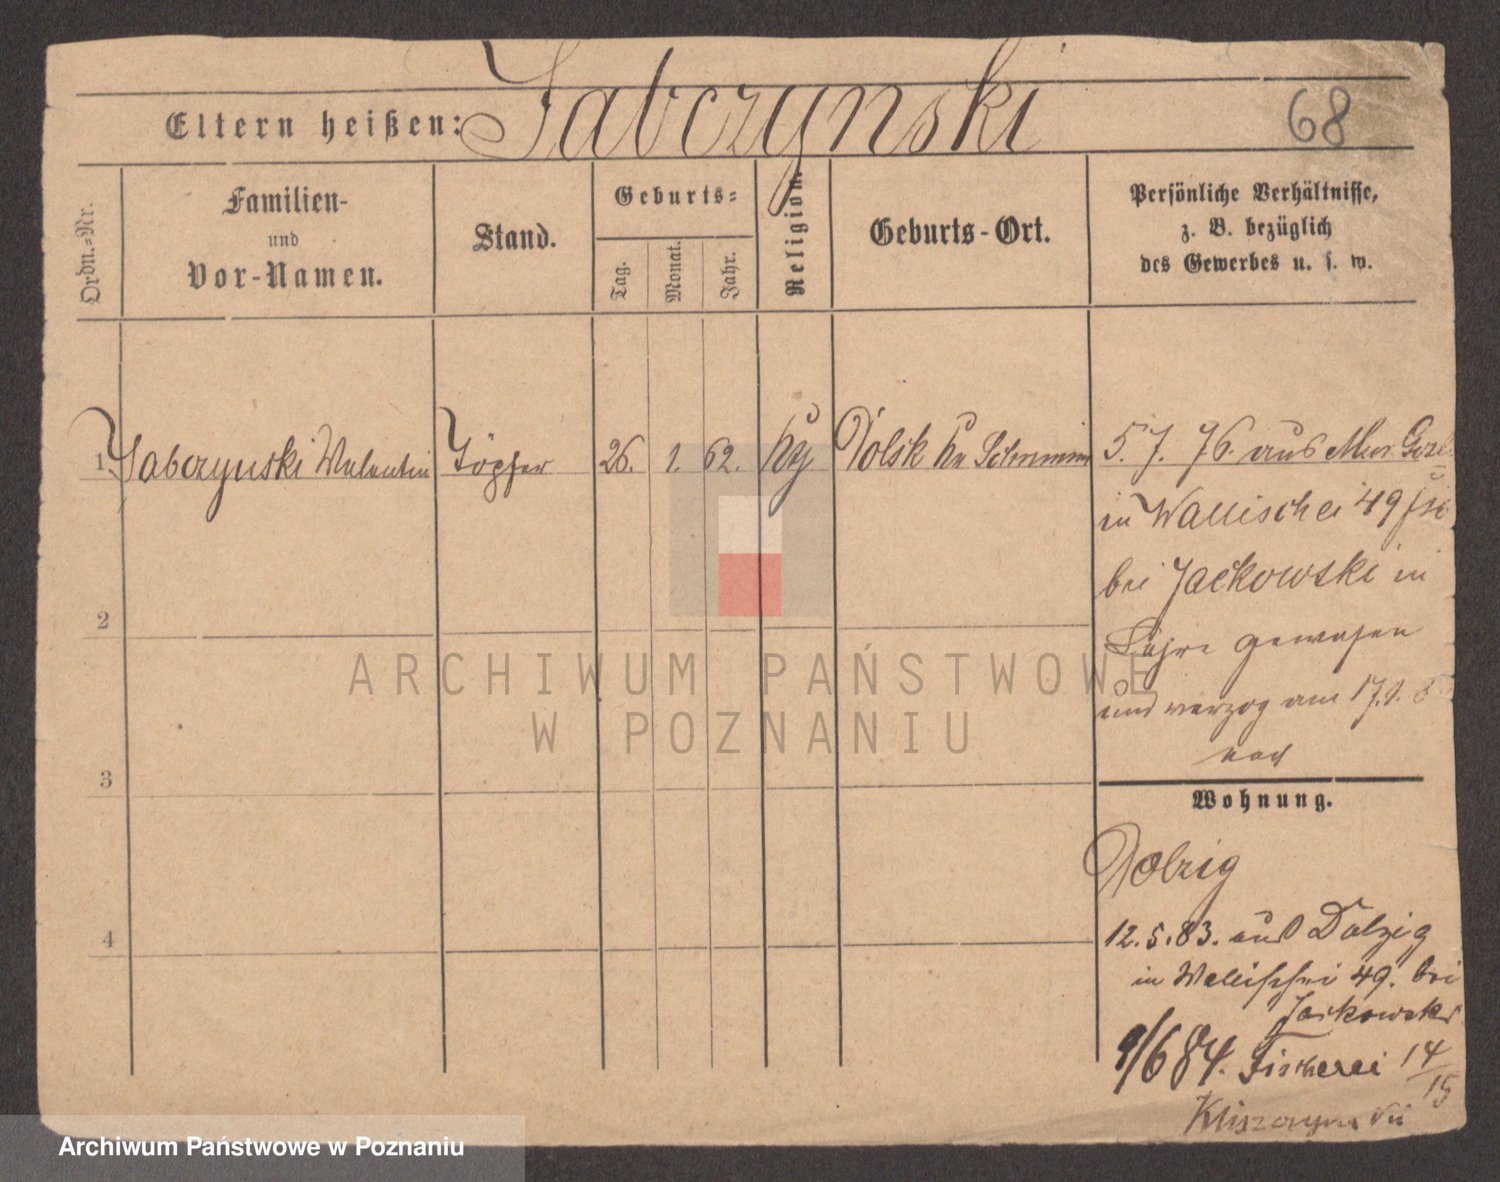 68
Eltern heißen: Jabczynski
Ordn.-Nr.
Familien-
und
Vor-Namen.
Stand.
Geburts-
Tag.
Monat.
Jahr.
Religion.
Geburts-Ort.
Persönliche Verhältnisse,
z. B. bezüglich
des Gewerbes u. s. w.
1 Jabczynski Valentin Töpfer 26. 1. 62. Dolsk Kr Schrimm
5. 7. 76. aus Mur. Gosl
in Wallischei 49
bei Jackowski in
Lehre gewesen
und verzog am 17.
nach
2
3
4
Wohnung.
Dolzig
12. 5. 83. aus Dolzig
in Wallischei 49. bei
Jackowski
9/6 84. Fischerei 14/15
ARCHIWUM PAŃSTWOWE
W POZNANIU
Archiwum Państwowe w Poznaniu